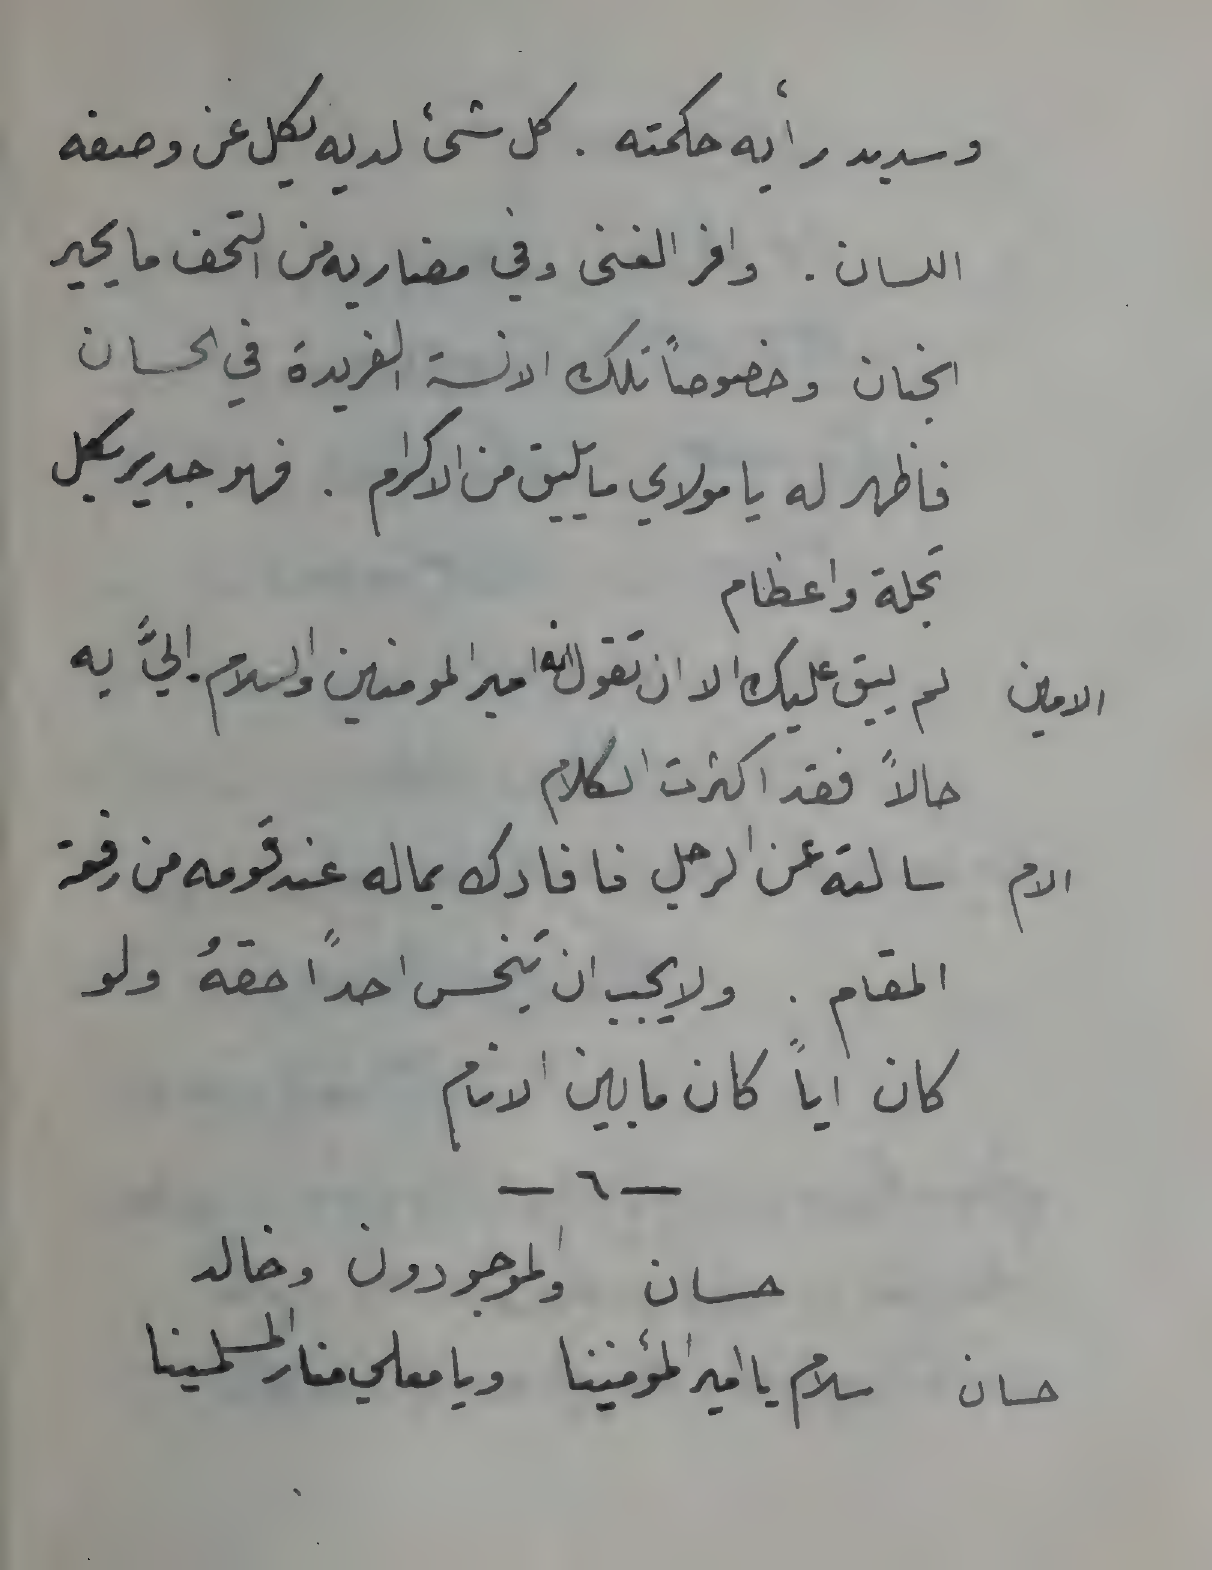 وسديد رأيه حكمته . كل شئ لديه يكل عن وصفه
اللسان . وافر الغنى وفي مضاربه من التحف ما يحير
الجنان وخصوصاً تلك الانسة الفريدة في الحسان
فاظهر له يا مولاي ما يليق من الاكرام . فهو جدير بكل
تجلة واعظام
الامين لم يبق عليك الا ان تقول انه امير المومنين والسلام. اليَّ به
حالاً فقد اكثرت الكلام
الام سالته عن الرجل فافادك بماله عند قومه من رفعة
المقام . ولا يجب ان تبخس احداً حقهُ ولو
كان اياً كان ما بين الانام
— ٦ —
حسان والموجودون وخالد
حسان سلام يا امير المؤمنينا ويا معلي منار المسلمينا